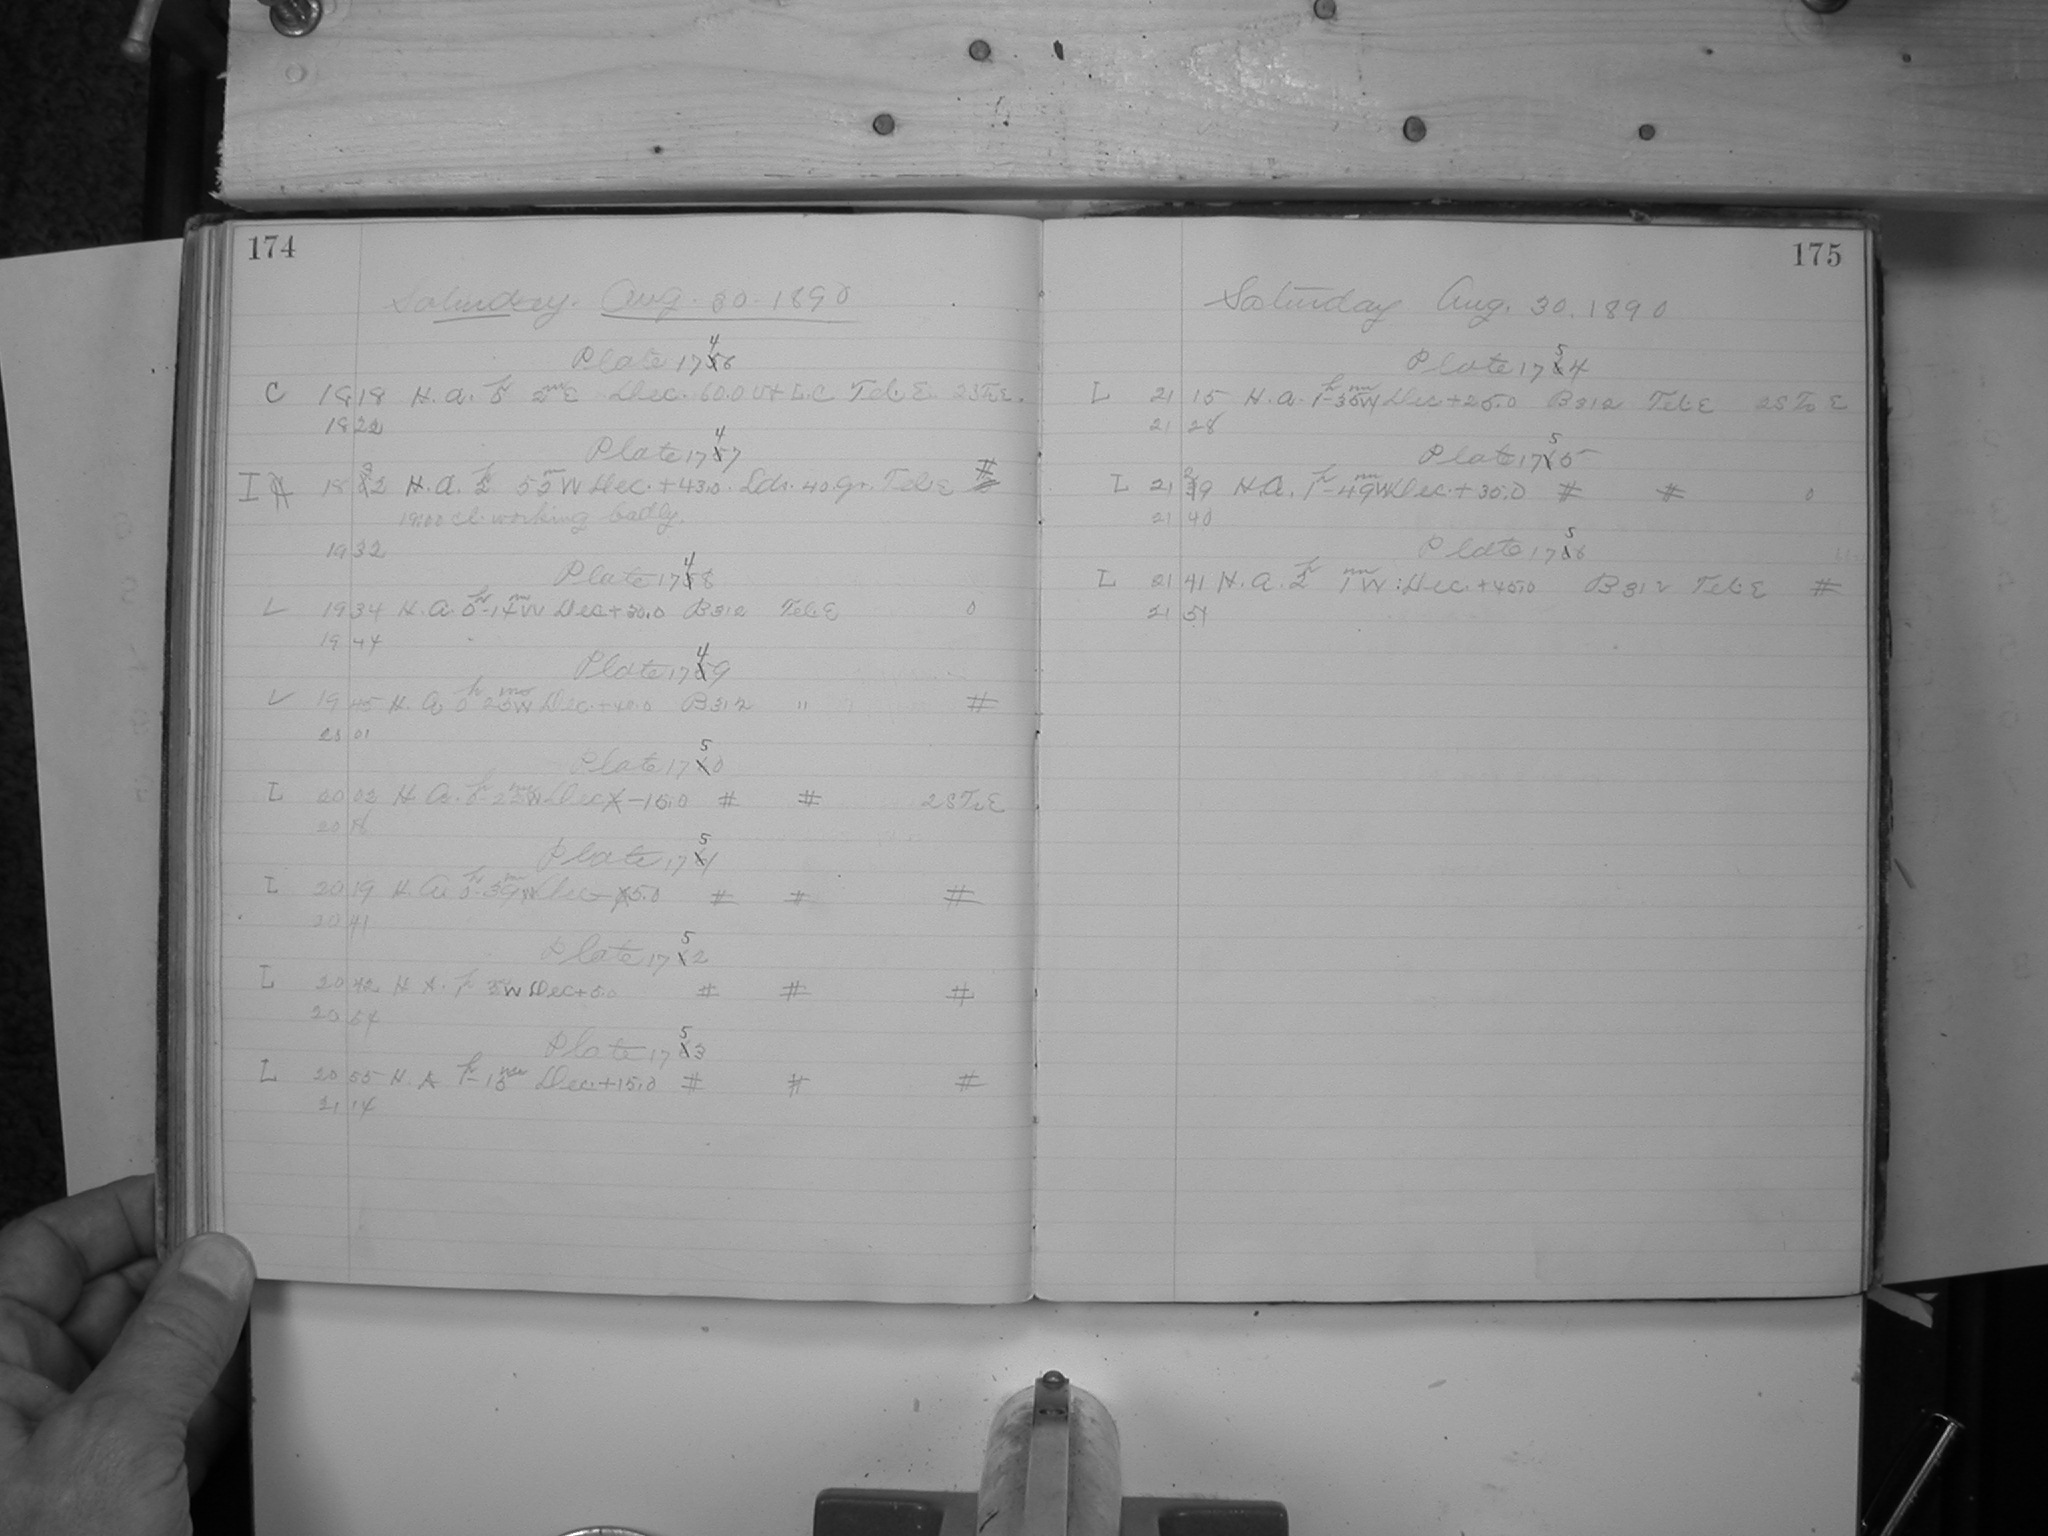 174
Saturday. Aug. 30. 1890
Plate 1746
C 18 18 H. A. 5h 2m E Dec. 60.0 L.C Tel. E. 2STrE.
18 22
Plate 1747
I 18 32 H. A. 2h 55m W Dec. + 43.0. Ldr. 40 gr. Tel. E #
19:00 cl. working badly.
19 32
Plate 1748
L 19 34 H. A. 0h-14m W Dec + 30.0 B312 Tel. E 0
19 44
Plate 1749
L 19 45 H. A. 0h W Dec. + 40.0 B312 " #
20 01
Plate 1750
L 20 02 H. A. 0h W Dec - 15.0 # # 2STrE
20 18
Plate 1751
L 20 19 H. A. 0h-39m W Dec - 5.0 # # #
20 41
Plate 1752
L 20 42 H. A. 1h 3W Dec + 5.0 # # #
20 54
Plate 1753
L 20 55 H. A 1h-15m Dec. + 15.0 # # #
21 14
175
Saturday Aug. 30. 1890
Plate 1754
L 21 15 H. A. 1h-35m W Dec + 25.0 B312 Tel. E 2S Tr E
21 28
Plate 1755
L 21 29 H. A. 1h-49m W Dec. + 35.0 # # 0
21 40
Plate 1756
L 21 41 H. A. 2h 1m W: Dec. + 45.0 B312 Tel. E #
21 51